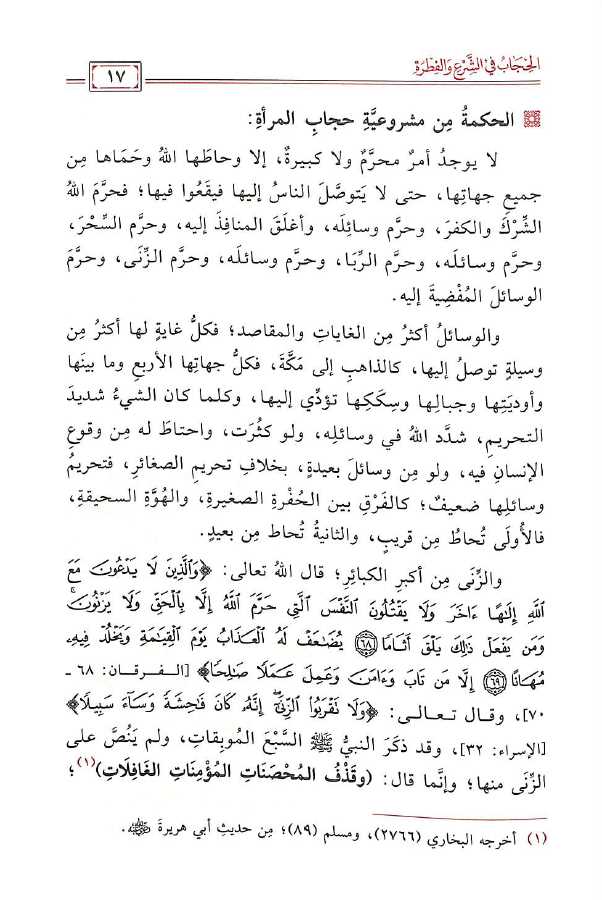 الحِجَابُ فِي الشَّرْعِ وَالفِطْرَةِ
١٧
الحكمةُ مِن مشروعيَّةِ حجابِ المرأةِ:
لا يوجدُ أمرٌ محرَّمٌ ولا كبيرةٌ، إلا وحاطَها اللهُ وحَمَاها مِن
جميعِ جهاتِها، حتى لا يَتوصَّلَ الناسُ إليها فيقَعُوا فيها؛ فحرَّمَ اللهُ
الشِّرْكَ والكفرَ، وحرَّم وسائِلَه، وأغلَقَ المنافِذَ إليه، وحرَّم السِّحْرَ،
وحرَّم وسائلَه، وحرَّم الرِّبَا، وحرَّم وسائلَه، وحرَّم الزِّنَى، وحرَّمَ
الوسائلَ المُفْضِيةَ إليه.
والوسائلُ أكثرُ مِن الغاياتِ والمقاصد؛ فكلُّ غايةٍ لها أكثرُ مِن
وسيلةٍ توصلُ إليها، كالذاهبِ إلى مَكَّةَ، فكلُّ جهاتِها الأربعِ وما بينَها
وأوديَتِها وجبالِها وسِكَكِها تؤدِّي إليها، وكلما كان الشيءُ شديدَ
التحريمِ، شدَّد اللهُ في وسائلِه، ولو كثُرَت، واحتاطَ له مِن وقوعِ
الإنسانِ فيه، ولو مِن وسائلَ بعيدةٍ، بخلافِ تحريمِ الصغائرِ، فتحريمُ
وسائلِها ضعيفٌ؛ كالفَرْقِ بين الحُفْرةِ الصغيرةِ، والهُوَّةِ السحيقةِ،
فالأُولَى تُحاطُ مِن قريبٍ، والثانيةُ تُحاط مِن بعيدٍ.
والزِّنَى مِن أكبرِ الكبائرِ؛ قال اللهُ تعالى: ﴿وَالَّذِينَ لَا يَدْعُونَ مَعَ
اللَّهِ إِلَٰهًا ءَاخَرَ وَلَا يَقْتُلُونَ النَّفْسَ الَّتِي حَرَّمَ اللَّهُ إِلَّا بِالْحَقِّ وَلَا يَزْنُونَ ۚ
وَمَن يَفْعَلْ ذَٰلِكَ يَلْقَ أَثَامًا ﴿٦٨﴾ يُضَٰعَفْ لَهُ الْعَذَابُ يَوْمَ الْقِيَٰمَةِ وَيَخْلُدْ فِيهِ
مُهَانًا ﴿٦٩﴾ إِلَّا مَن تَابَ وَءَامَنَ وَعَمِلَ عَمَلًا صَٰلِحًا﴾ [الفرقان: ٦٨ -
٧٠]، وقال تعالى: ﴿وَلَا تَقْرَبُوا الزِّنَىٰ ۖ إِنَّهُ كَانَ فَٰحِشَةً وَسَآءَ سَبِيلًا﴾
[الإسراء: ٣٢]، وقد ذكَرَ النبيُّ ﷺ السَّبْعَ المُوبِقاتِ، ولم يَنُصَّ على
الزِّنَى منها؛ وإنَّما قال: (وقَذْفُ المُحْصَنَاتِ المُؤْمِنَاتِ الغَافِلَاتِ)(١)؛
(١) أخرجه البخاري (٢٧٦٦)، ومسلم (٨٩)؛ مِن حديثِ أبي هريرةَ رضي الله عنه.